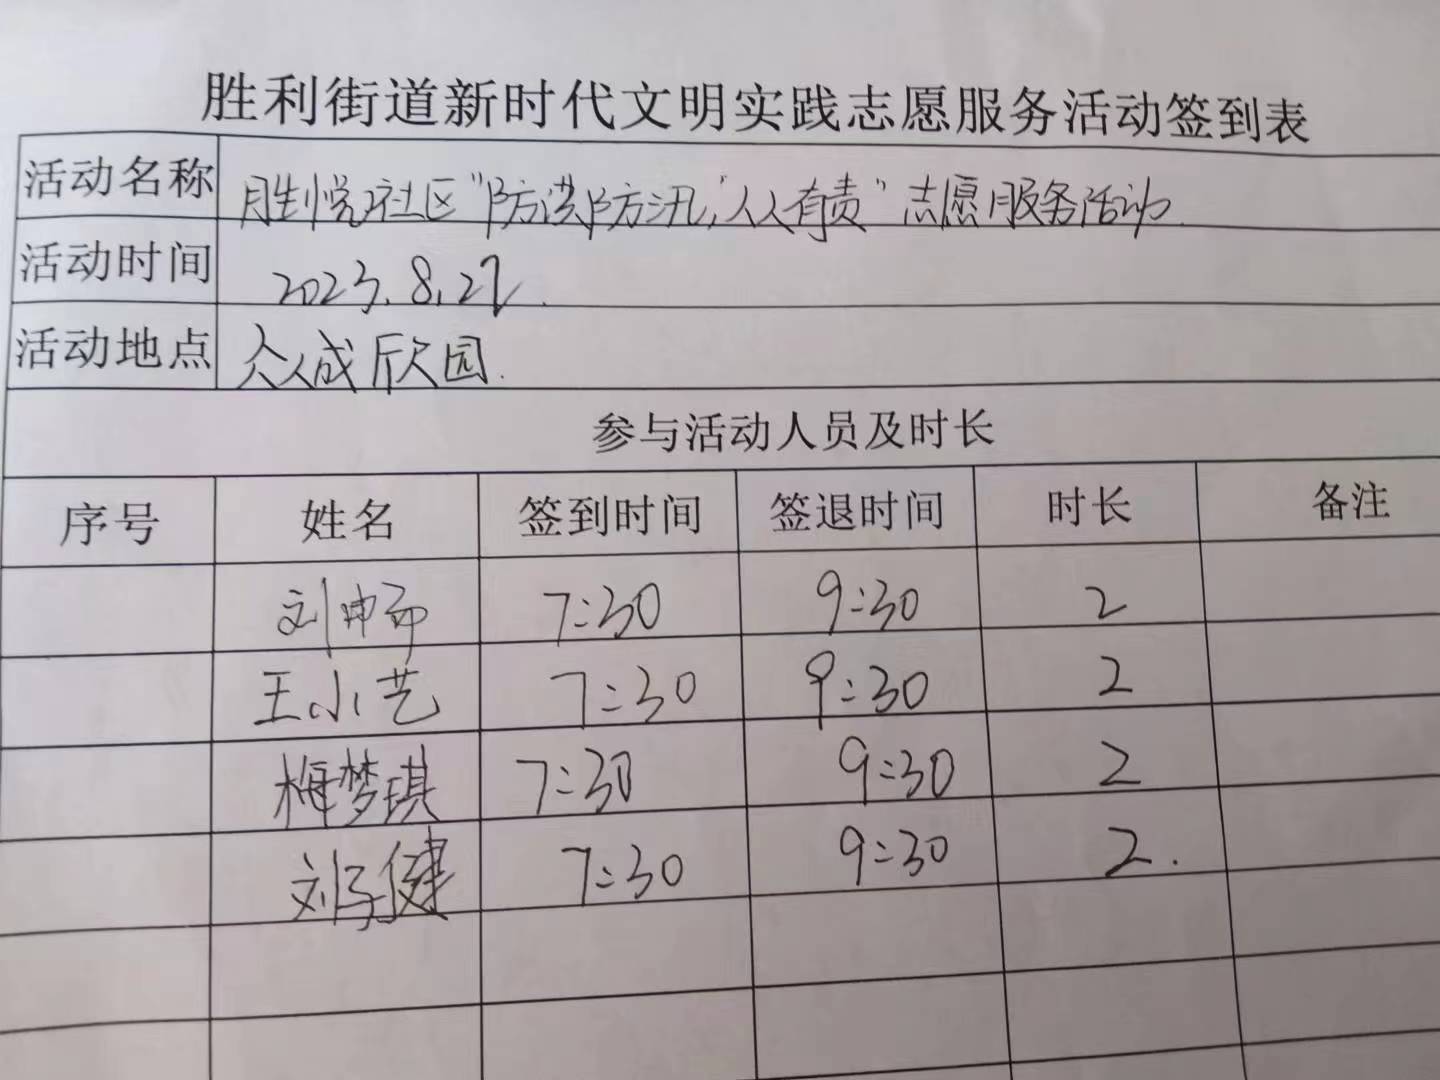 胜利街道新时代文明实践志愿服务活动签到表
活动名称 胜悦社区"防洪防汛,人人有责"志愿服务活动
活动时间 2023.8.22.
活动地点 众成欣园.
参与活动人员及时长
序号 姓名 签到时间 签退时间 时长 备注
刘 7:30 9:30 2
王小艺 7:30 9:30 2
梅梦琪 7:30 9:30 2
刘子健 7:30 9:30 2.